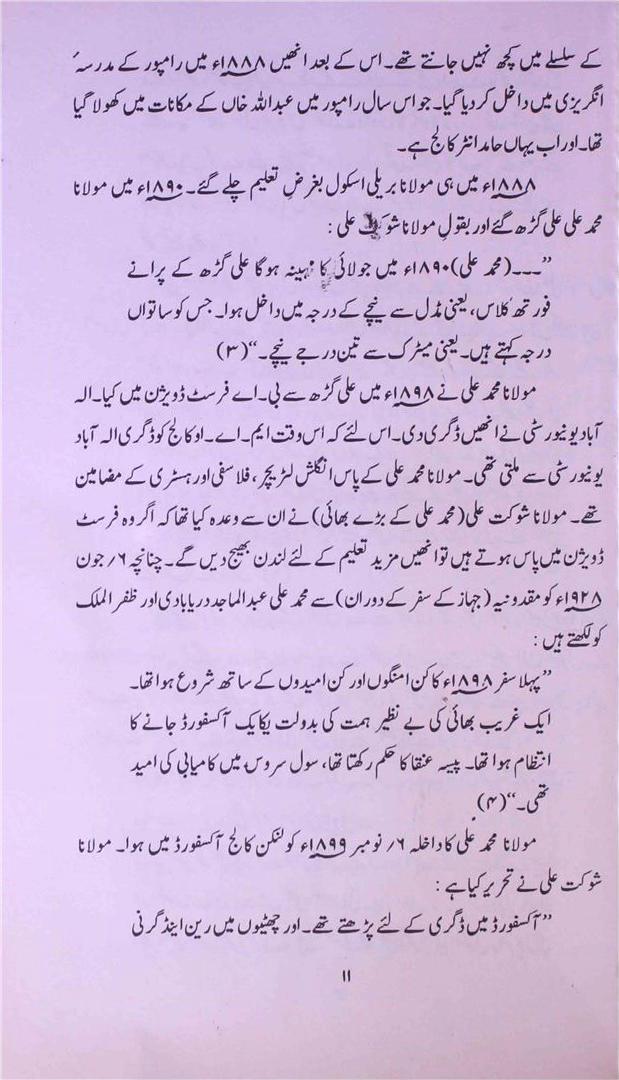 کے سلسلے میں کچھ نہیں جانتے تھے۔ اس کے بعد انھیں ۱۸۸۸ء میں رامپور کے مدرسہٴ
انگریزی میں داخل کر دیا گیا۔ جو اس سال رامپور میں عبد اللہ خاں کے مکانات میں کھولا گیا
تھا۔ اور اب یہاں حامد انٹر کالج ہے۔
۱۸۸۸ء میں ہی مولانا بریلی اسکول بغرضِ تعلیم چلے گئے۔ ۱۸۹۰ء میں مولانا
محمد علی علی گڑھ گئے اور بقول مولانا شوکت علی :
”۔۔۔(محمد علی) ۱۸۹۰ء میں جولائی کا مہینہ ہوگا علی گڑھ کے پرانے
فورتھ کلاس، یعنی مڈل سے نیچے کے درجہ میں داخل ہوا۔ جس کو ساتواں
درجہ کہتے ہیں۔ یعنی میٹرک سے تین درجے نیچے۔“ (۳)
مولانا محمد علی نے ۱۸۹۸ء میں علی گڑھ سے بی۔اے فرسٹ ڈویژن میں کیا۔ الہ
آباد یونیورسٹی نے انھیں ڈگری دی۔ اس لئے کہ اس وقت ایم۔اے۔او کالج کو ڈگری الہ آباد
یونیورسٹی سے ملتی تھی۔ مولانا محمد علی کے پاس انگلش لٹریچر، فلاسفی اور ہسٹری کے مضامین
تھے۔ مولانا شوکت علی (محمد علی کے بڑے بھائی) نے ان سے وعدہ کیا تھا کہ اگر وہ فرسٹ
ڈویژن میں پاس ہوتے ہیں تو انھیں مزید تعلیم کے لئے لندن بھیج دیں گے۔ چنانچہ ۶؍ جون
۱۹۲۸ء کو مقدونیہ (جہاز کے سفر کے دوران) سے محمد علی عبد الماجد دریابادی اور ظفر الملک
کو لکھتے ہیں :
”پہلا سفر ۱۸۹۸ء کا کن امنگوں اور کن امیدوں کے ساتھ شروع ہوا تھا۔
ایک غریب بھائی کی بے نظیر ہمت کی بدولت یکایک آکسفورڈ جانے کا
انتظام ہوا تھا۔ پیسہ عنقا کا حکم رکھتا تھا، سول سروس میں کامیابی کی امید
تھی۔“ (۴)
مولانا محمد علی کا داخلہ ۶؍ نومبر ۱۸۹۹ء کو لنکن کالج آکسفورڈ میں ہوا۔ مولانا
شوکت علی نے تحریر کیا ہے :
”آکسفورڈ میں ڈگری کے لئے پڑھتے تھے۔ اور چھٹیوں میں رین اینڈ گرنی
۱۱